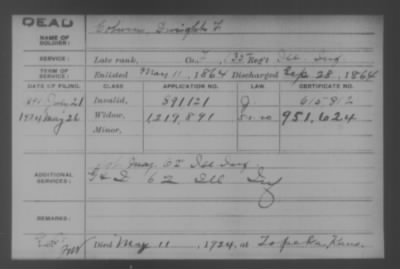 DEAD
NAME OF SOLDIER: Colvin, Dwight F
SERVICE: Late rank, Co. F, 135 Reg't Ill Inf
TERM OF SERVICE: Enlisted May 11, 1864 Discharged Sep 28, 1864
DATE OF FILING. CLASS APPLICATION NO. LAW CERTIFICATE NO.
July 21 Invalid, 891121 615812
1924 May 26 Widow, 1219,891 951,624
Minor,
ADDITIONAL SERVICES: 62 Ill Inf
62 Ill Inf
REMARKS:
Died May 11, 1924, at Topeka, Kans.